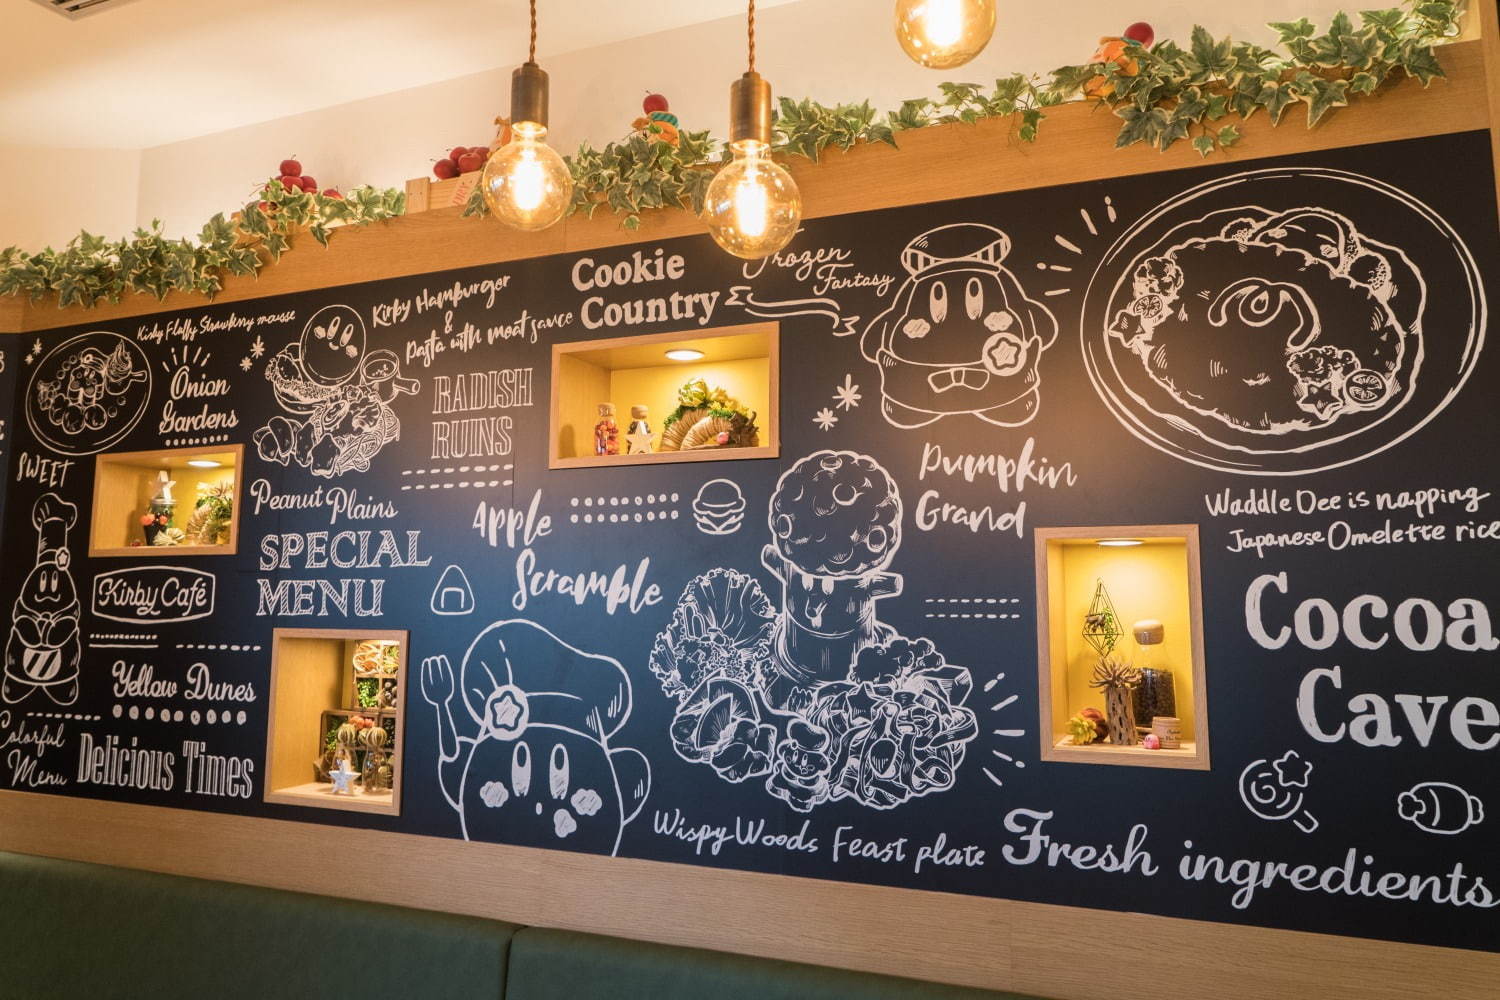 Kirby Fluffy Strawberry mousse
Onion
Gardens
SWEET
Kirby Hamburger
&
Pasta with meat sauce
RADISH
RUINS
Cookie
Country
Frozen
Fantasy
Peanut Plains
SPECIAL
MENU
Kirby Café
Yellow Dunes
Colorful
Menu
Delicious Times
Apple
Scramble
Pumpkin
Grand
Wispy Woods Feast plate
Waddle Dee is napping
Japanese Omelette rice
Cocoa
Cave
Fresh ingredients